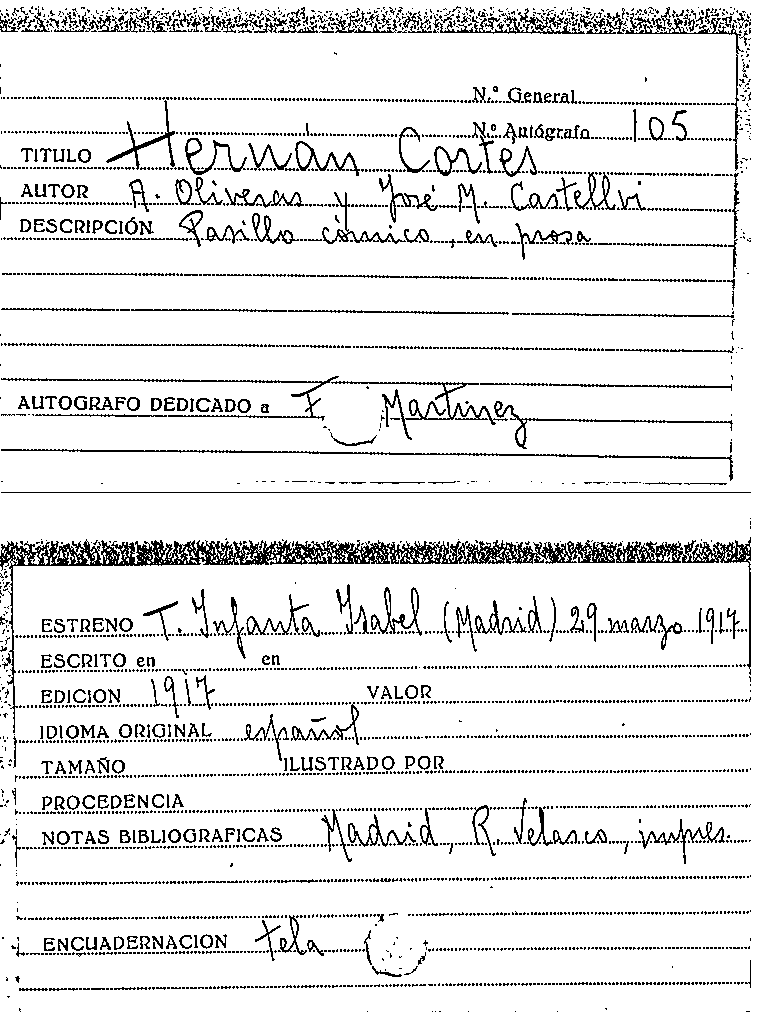 N.º General
N.º Autógrafo 105
TITULO Hernán Cortés
AUTOR A. Oliveras y José M. Castellvi
DESCRIPCIÓN Pasillo cómico, en prosa
AUTOGRAFO DEDICADO a F Martinez
ESTRENO T. Infanta Isabel (Madrid) 29 marzo 1917
ESCRITO en en
EDICION 1917 VALOR
IDIOMA ORIGINAL español
TAMAÑO ILUSTRADO POR
PROCEDENCIA
NOTAS BIBLIOGRAFICAS Madrid, R. Velasco, impres.
ENCUADERNACION tela